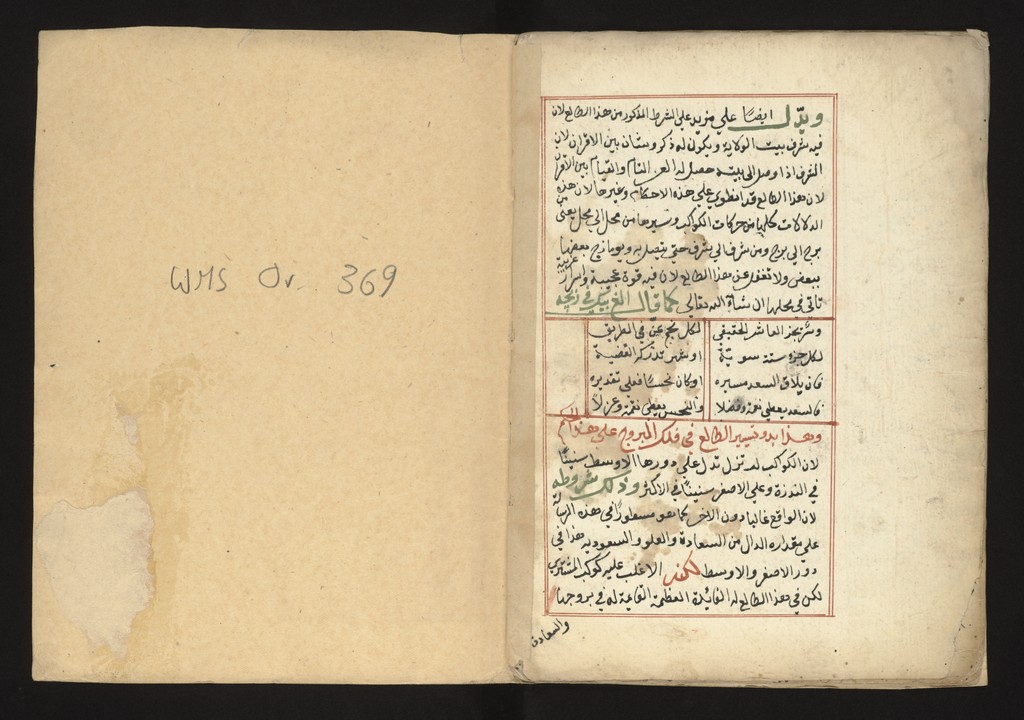 WMS Or. 369
ويدل ايضا علي مزيد علي الشرط المذكور من هذا الطالع لان
فيه شرف بيت الولاية ويكون له ذكر وشان بين الاقران لان
الشرف اذا وصل الي بيته حصل له العز التام والقيام بين الاقران
لان هذا الطالع قد انطوي علي هذه الاحكام وغيرها لان هذه
الدلالات كلها من حركات الكواكب وسيرها من محل الي محل يعني
برج الي برج ومن شرف الي شرف حتي يتصل به ويمازج بعضها
ببعض ولا تغفل عن هذا الطالع لان فيه قوة عجيبة واسرار غريبة
تاتي في محلها ان شاء الله تعالي كما قال الغ بيك في زيجه
وسر بجزء العاشر الحقيقي لكل نجم عن في الطريق
لكل جزء ستة سوية او شهر تذكر القضية
فان يلاق السعد مسيره او كان نحسا فعلي تقديره
فالسعد يعطي نعمة وفضلا والنحس يعطي نقمة وعزلا
وهذا بدو تسيير الطالع في فلك البروج علي هذا الحكم
لان الكواكب لم تزل تدل علي دورها الاوسط سنينا
في الندرة وعلي الاصغر سنينا في الاكثر وذلك بشروطه
لان الواقع غالبا دون الاخر كما هو مسطورا في هذه الرسالة
علي مقداره الدال من السعادة والعلو والسعودية هذا في
دور الاصغر والاوسط لكن الاغلب عليه كوكب المشتري
لكن في هذا الطالع له الفائدة العظمة القايمة له في بروجها
والسعادة